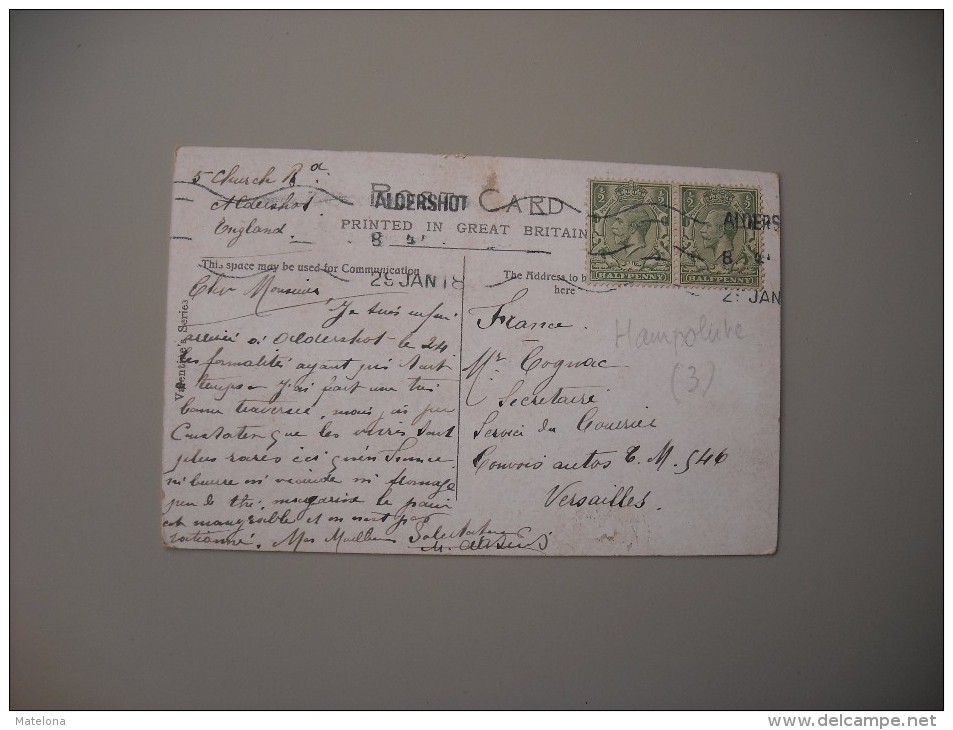 5 Church Rd
Aldershot
England.
POST CARD
PRINTED IN GREAT BRITAIN
ALDERSHOT
8
29 JAN 18
ALDERS
8
29 JAN
HALFPENNY
HALFPENNY
This space may be used for Communication
The Address to b
here
Valentine's Series
Cher Monsieur
Je suis enfin
arrivé à Aldershot le 24
les formalités ayant pris tout
temps. J'ai fait une très
bonne traversée, mais j'ai pu
Constater que les vivres sont
plus rares ici qu'en France
ni beurre ni viande ni fromage
peu de thé, margarine le pain
est mangeable et on n'est pas
rationné. Mes Meilleures Salutations
France.
Mr Cognac
Secretaire
Service du Courrier
Convois autos T. M. 546
Versailles.
(3)
Matelona
www.delcampe.net